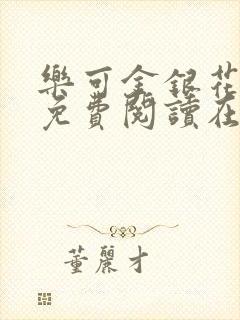 樂可金銀花
免費閱讀在
董麗才